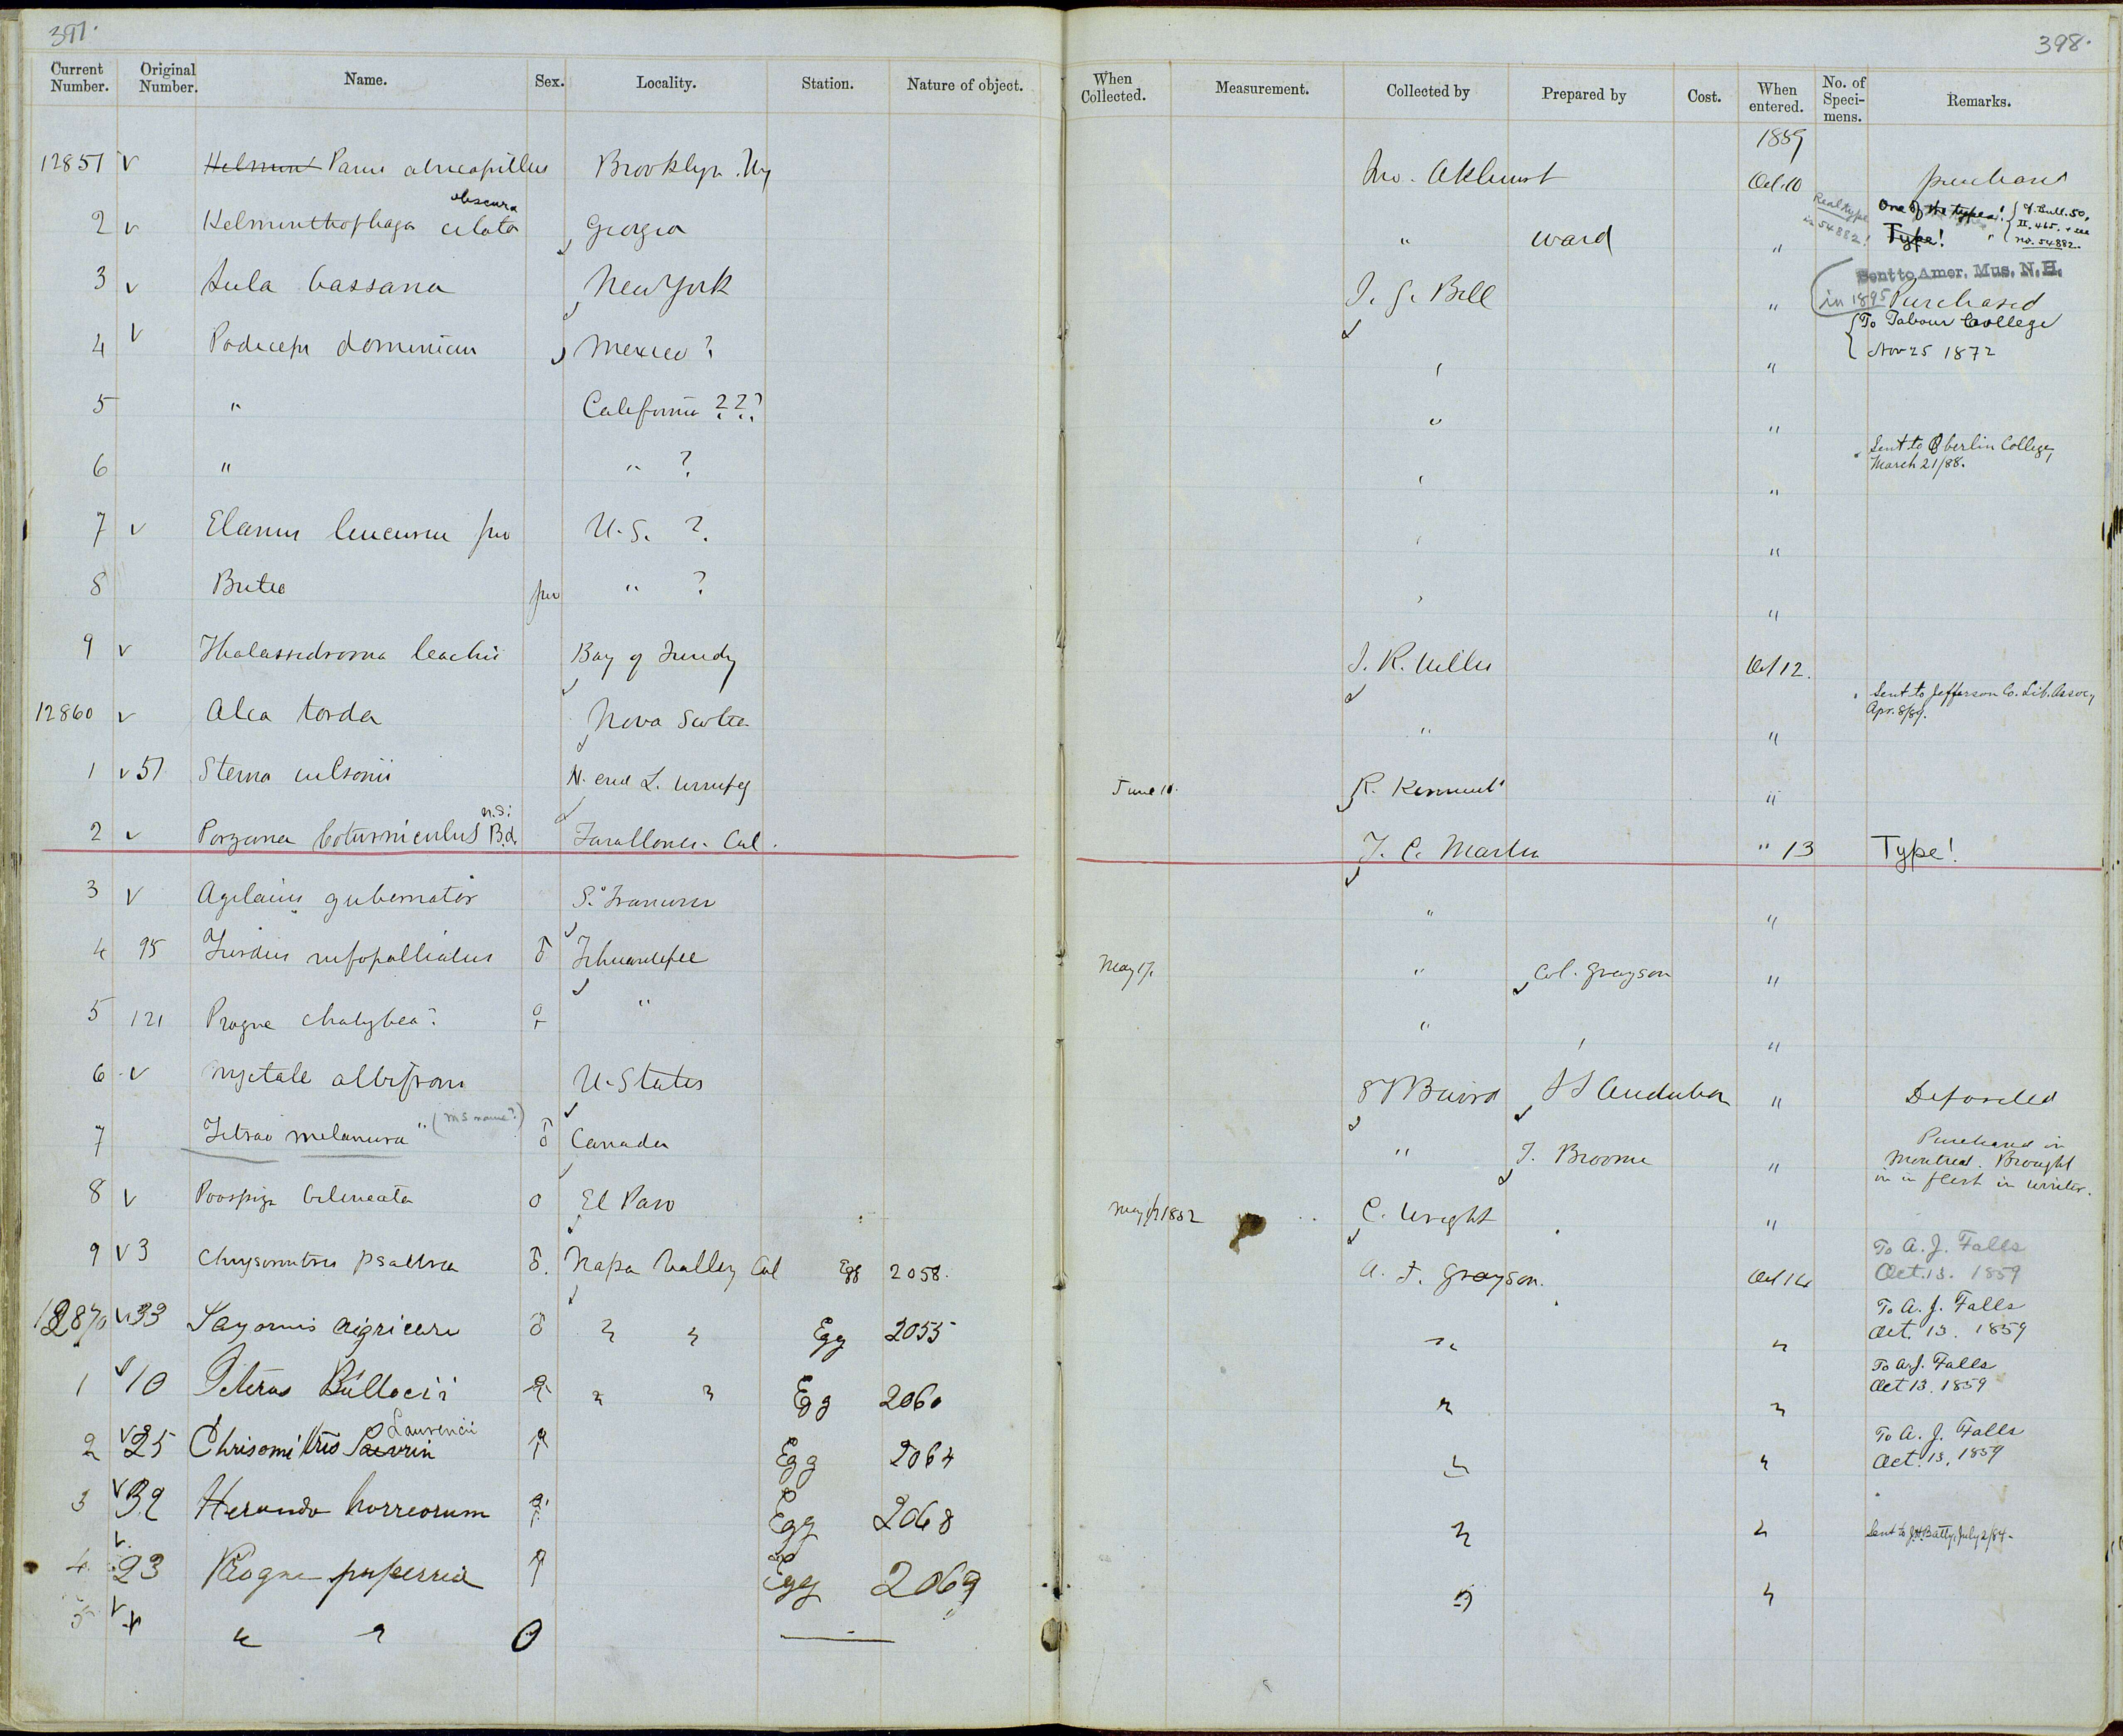 397.
398.
Current Number. Original Number. Name. Sex. Locality. Station. Nature of object. When Collected. Measurement. Collected by Prepared by Cost. When entered. No. of Speci- mens. Remarks.
1859
12851 v Helmint Parus atricapillus Brooklyn. Ny Jno. Akhurst Oct. 10 purchased
obscura
2 v Helminthophaga celata Georgia " Ward " Real type is 54882! One of the types! Type! { cf. Bull. 50, II. 465. + see no. 54882.
3 v Sula bassana New York J. G. Bell " Sent to Amer. Mus. N. H. in 1895 Purchased
4 v Podiceps dominicus Mexico ? " " { To Tabour College Nov 25 1872
5 " California ??? " "
6 " " ? " " Sent to Oberlin College, March 21/88.
7 v Elanus leucurus juv U. S. ? " "
8 Buteo juv " ? " "
9 v Thalassidroma leachii Bay of Fundy J. R. Willis Oct 12.
12860 v Alca torda Nova Scotia " " Sent to Jefferson Co. Lib. Assoc, Apr. 8/89.
1 v 51 Sterna wilsonii N. end L. Winnipeg June 10. R. Kennicott "
2 v Porzana coturniculus n.s. Bd. Farallones. Cal. F. C. Martin " 13 Type!
3 v Agelaius gubernator S. Francisco " "
4 95 Turdus rufopalliatus ♂ Tehuantepec May 17. " Col. Grayson "
5 121 Progne chalybea? ♀ " " " "
6 v Nyctale albifrons U. States S F Baird J J Audubon " Deposited
7 Tetrao melanura" (MS name?) ♂ Canada " J. Broome " Purchased in Montreal. Brought in in flesh in winter.
8 v Poospiza bilineata O El Paso May 1852 C. Wright "
9 v 3 Chrysomitris psaltria ♂. Napa Valley Cal Egg 2058. A. J. Grayson. Oct 14 To A. J. Falls Oct. 13. 1859
12870 v 33 Sayornis nigricans ♂ " " Egg 2055 " " To A. J. Falls Oct. 13. 1859
1 v 10 Icterus Bullocii ♀ " " Egg 2060 " " To A. J. Falls Oct 13. 1859
Laurencii
2 v 25 Chrisomitris ♂ Egg 2064 " " To A. J. Falls Oct. 13. 1859
3 v 32 Herundo horreorum ♀ Egg 2068 " " Sent to J.H. Batty, July 2/84.
4 v 23 Progne purpurria ♂ Egg 2069 " "
5 v " " O